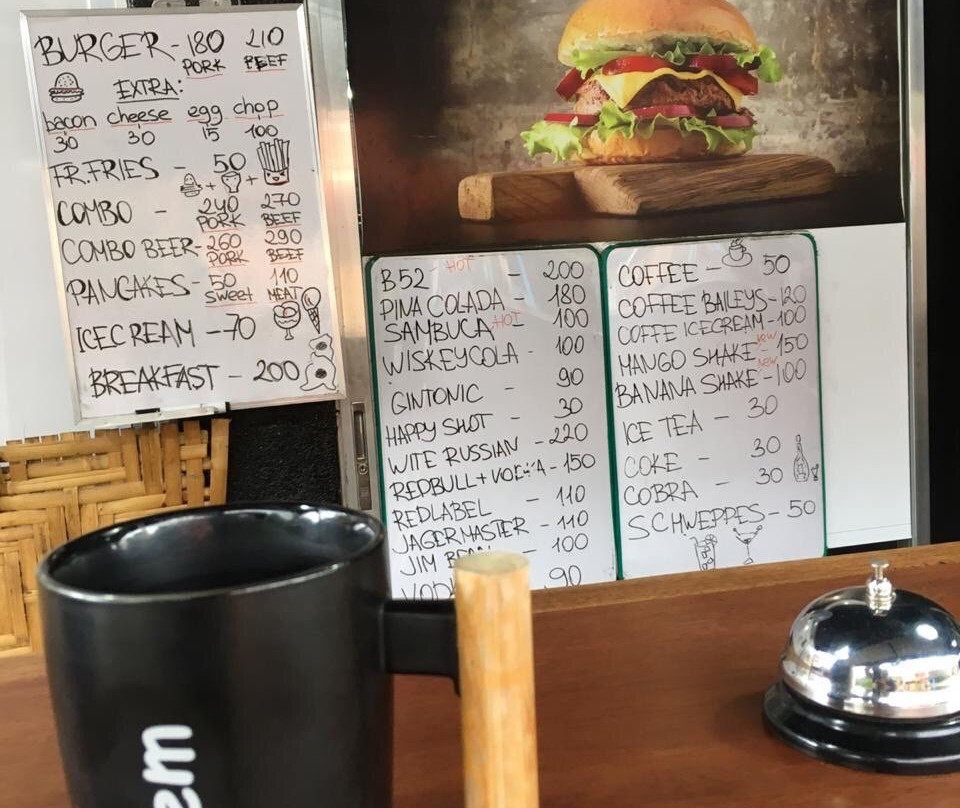 BURGER - 180 210
PORK BEEF
EXTRA:
bacon cheese egg chop
30 30 15 100
FR.FRIES - 50
+ +
COMBO - 240 270
PORK BEEF
COMBO BEER - 260 290
PORK BEEF
PANCAKES - 50 110
sweet MEAT
ICECREAM - 70
BREAKFAST - 200
B52 - HOT - 200
PINA COLADA - 180
SAMBUCA HOT - 100
WISKEYCOLA - 100
GINTONIC 90
HAPPY SHOT - 30
WITE RUSSIAN - 220
REDBULL + VODKA - 150
REDLABEL - 110
JAGERMASTER - 110
JIM - 100
90
COFFEE - 50
COFFEE BAILEYS - 120
COFFE ICECREAM - 100
MANGO SHAKE new - 150
BANANA SHAKE new - 100
ICE TEA - 30
COKE - 30
COBRA - 30
SCHWEPPES - 50
em